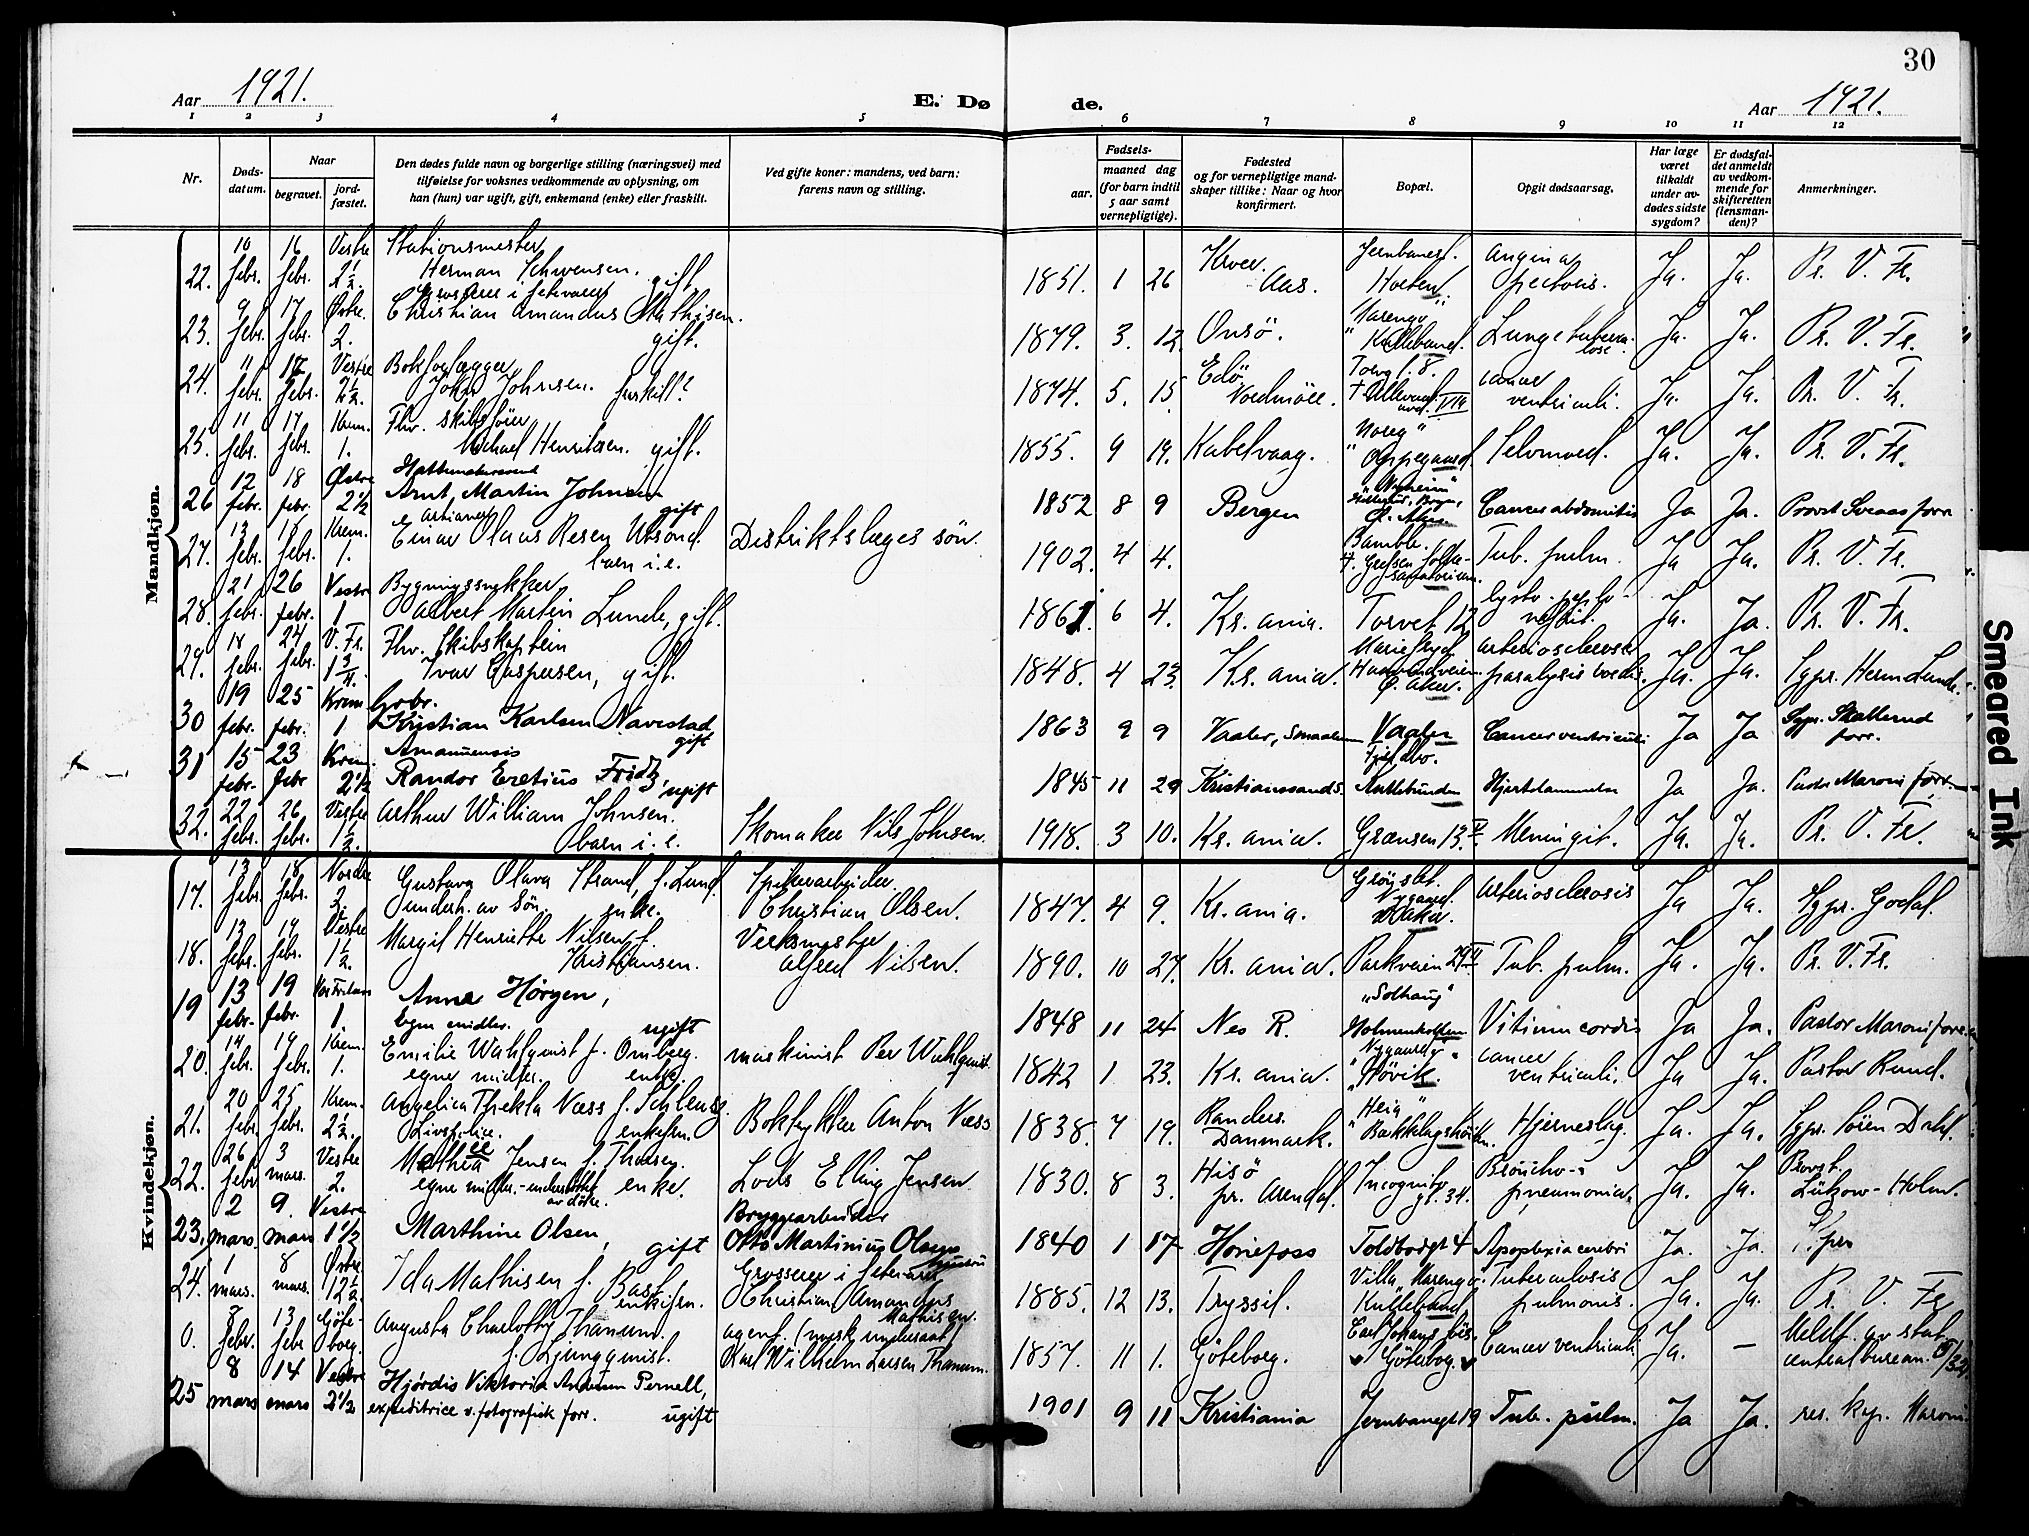 30
Aar 1921.
E. Dø de.
Aar 1921.
1 2 3 4 5 6 7 8 9 10 11 12
Nr.
Døds-
datum.
Naar
begravet.
jord-
fæstet.
Den dødes fulde navn og borgerlige stilling (næringsvei) med
tilføielse for voksnes vedkommende av oplysning, om
han (hun) var ugift, gift, enkemand (enke) eller fraskilt.
Ved gifte koner: mandens, ved barn:
farens navn og stilling.
Fødsels-
aar.
maaned dag
(for barn indtil
5 aar samt
vernepligtige).
Fødested
og for vernepligtige mand-
skaper tillike: Naar og hvor
konfirmert.
Bopæl.
Opgit dødsaarsag.
Har læge
været
tilkaldt
under av-
dødes sidste
sygdom?
Er dødsfal-
det anmeldt
av vedkom-
mende for
skifteretten
(lensman-
den)?
Anmerkninger.
Mandkjøn.
10 16 Vestre Stationsmester Jernbanest. angina
22. febr. febr. 2½. Herman Schwensen. gift. 1851. 1 26 Kroer. Aas. Holten pectoris. Ja. Ja. Pr. V. Fr.
Grosserer i fetevarer
9 17 Østre. Christian Amandus Mathisen. Marengo
23. febr. febr. 2. gift. 1879. 3. 12. Onsö. Kullebund. Lungetuberku-
lose. Ja. Ja. Pr. V. Fr.
11 17 Vestre Bokforlægger Edö Torvg. 8. cancer
24. febr. febr. 2½. John Johnsen. frskilt? 1874. 5. 15. Nordmöre. † Ullevaal avd. VIII ventriculi. Ja. Ja. Pr. V. Fr.
11 17 Krem. Fhv. skibsfører "Noreg"
25. febr. febr. 1. Michael Henriksen. gift. 1855. 9 19. Kabelvaag. Oppegaard. Selvmord. Ja. Ja. Pr. V. Fr.
12 18 Østre Hattemakersvend
26 febr. febr. 2½ Arnt Martin Johnsen gift 1852 8 9 Bergen Ø. Aker. Cancer abdominis Ja Ja. Provst Sveaas forr
artianer
13 18 Krem. Einar Olaus Resen Utsond. Distriktslæges sön. Bamble.
27. febr. febr. 1. barn i. e. 1902. 4 4. † Grefsen sanatorium. Tub. pulm. Ja Ja. Pr. V. Fr.
21 26 Vestre Bygningssnekker
28. febr. febr. 1 Albert Martin Lunde, gift. 1861. 6 4. Kr. ania. Torvet 12 Ja. Ja. Pr. V. Fr.
18 24 V. Fr. Fhv. Skibskaptein arteriosclerose
29. febr. febr. Ivar Caspersen, gift. 1848. 4 23. Kr. ania. Ø. Aker. paralysis cordis. Ja. Ja. Sgpr. Herm Lunde.
19 25 Krem Grbr.
30 febr. febr. 1 Kristian Karlsen Navestad gift 1863 9 9 Vaaler, Smaalene Vaaler Cancer ventriculi Ja Ja Sgpr. Skatterud forr.
15 23 Krem. Amanuensis
31 febr. febr 2½ Randor Eretius Fridz, ugift 1845 11 29 Kristianssands. Hjertelammelse Ja Ja. Pastor Maroni forr.
22 26 Vestre Arthur William Johnsen.
32. febr. febr. ½. barn i. e. Skomaker Nils Johnsen. 1918. 3 10. Kr. ania. Grænsen 13. Meningit. Ja. Ja. Pr. V. Fr.
Kvindekjøn.
13 18 Nordre Gustava Olava Strand, f. Lund. Spikerarbeider.
17. febr. febr. 2. underh. av sön. enke. Christian Olsen. 1847. 4 9. Kr. ania. Ø. Aker. arteriosclerosis Ja Ja. Sgpr. Godal.
13 19 Vestre Margit Henriette Nilsen f. Verksmester
18. febr. febr. 1½. Kristiansen. Alfred Nilsen. 1890. 10 27. Kr. ania. Parkveien Tub. pulm. Ja. Ja. Pr. V. Fr.
13 19 Anna Hörgen, "Solhaug"
19 febr. febr. 1. Egne midler. ugift 1848 11 24 Nes R. Holmenkollen Vitium cordis Ja Ja. Pastor Maroni forr.
14 19 Krem. Emilie Wahlqvist f. Ornberg. maskinist Per Wahlqvist. Nygaard cancer
20. febr. febr. 1. egne midler. enke. 1842 1 23. Kr. ania. Hövik. ventriculi. Ja Ja. Pastor Rund.
20 25 Krem. Angelica Thekla Næss f. Schlensg. Randers. "Heia"
21. febr. febr. 2½. Livspolice. enkefru. Boktrykker Anton Næss 1838. 7 19. Danmark. Bækkelagshöiden. Hjerneslag. Ja. Ja. Sgpr. Sören Dahl.
26 3 Vestre Mathea Jensen f. Thorsey. Hisö Bröncho-
22. febr mars. 2. egne midler.- understöttet av döttre. enke. Lods Elling Jensen 1830. 8 3. pr. Arendal. Incognito gt. 34. pneumonia. Ja. Ja. Provst. Lützow-Holm.
2 9. Vestre Bryggearbeider
23. mars. mars 1½ Marthine Olsen, gift Otto Martinius Olsen 1840 1 17 Hönefoss Toldbodgt 4 Apoplexia cerebri Ja. Ja.
1 8 Östre Ida Mathisen f. Bast. Grosserer i fetevarer Villa Marengo Tuberculosis
24. mars. mars. 12½. enkefru. Christian Amandus Mathisen. 1885. 12 13. Trysil. Kullebund. pulmonis. Ja. Ja. Pr. V. Fr.
13 Göte-
0. febr. febr borg. Augusta Charlotte Thanum. f. Ljungqvist. agent. (norsk undersaat) Karl Wilhelm Larsen Thanum. 1857. 11 1. Göteborg. Göteborg. Cancer ventriculi Ja. — Meldt. av stat. centralbureau.
8 14 Vestre Hjördis Viktoria Andersen Pernell,
25 mars mars 2½ expeditrice v. fotografisk forr. ugift 1901 9 11 Kristiania Jernbanegt 19 Tub. pulm. Ja Ja. res. kap. Maroni
Smeared Ink